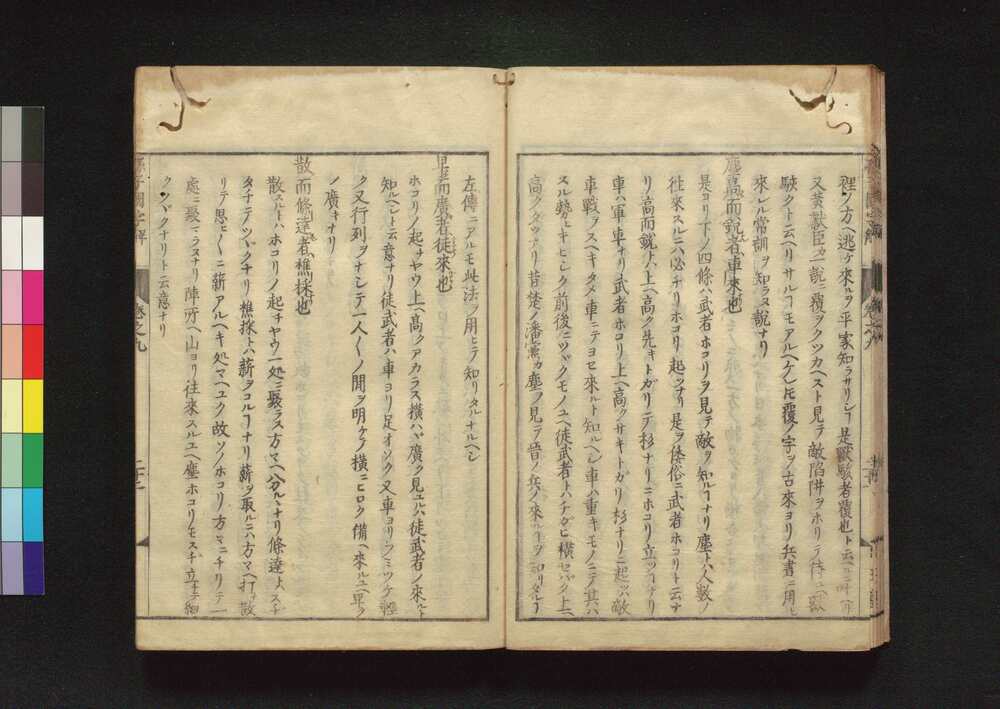 裡ツ方ヘ逃ケ來ルヲ平家知ラサリシ是獸駭者覆也ト云
又黄獻臣カ一説ニ覆ヲクツカヘスト見テ敵陷阱ヲホリテ待ユヘ獸
駭クト云ヘリサルコモアルヘケレ𪜈覆ノ字ヲ古來ヨリ兵書ニ用ヒ
來レル常訓ヲ知ラヌ説ナリ
塵高而銳者車來也
是ヨリ下ノ四條ハ武者ホコリヲ見テ敵ヲ知ルコナリ塵トハ人數ノ
往來スルニハ必チリホコリ起ツナリ是ヲ倭俗ニ武者ホコリト云ナ
リ高而銳トハ上ヘ高ク先キトガリテ杉ナリニホコリ立ツコナリ
車ハ軍車ナリ武者ホコリ上ヘ高クサキトガリ杉ナリニ起ツハ敵
車戰ヲスヘキタメ車ニテヨセ來ルト知ルヘシ車ハ重キモノニテ其ハ
スル勢ヒキヒシク前後ニツヾクモノユヘ徒武者トハチガヒ横セバク上ヘ
高クタツナリ昔楚ノ潘黨カ塵ヲ見テ晉ノ兵ノ來ルコヲ知リタルコ
左傳ニアルモ此法ヲ用ヒテ知リタルナルヘシ
卑而廣者徒來也
ホコリノ起チヤウ上ヘ高クアカラス横ハヾ廣ク見ユルハ徒武者ノ來ルト
知ルヘシト云意ナリ徒武者ハ車ヨリ足オソク又車ヨリフミツケ輕
ク又行列ヲナシテ一人〳〵ノ間ヲ明ケノ横ニヒロク備ヘ來ルユヘ卑ク
ノ廣キナリ
散而條達者樵採也
散スルトハホコリノ起チヤウ一処ニ聚ラス方々ヘ分ルヽナリ條達トハスチ
タチテツヾクナリ樵採トハ薪ヲコルコナリ薪ヲ取ルニハ方々ヘ打散
リテ思ヒ〳〵ニ薪アルヘキ処々ヘユク故ソノホコリ方々ニチリテ一
處ニ聚マラヌナリ陣所ヘ山ヨリ往來スルユヘ塵ホコリモスチ立チテ細
クツヾクナリト云意ナリ
孫子國字解
卷之九